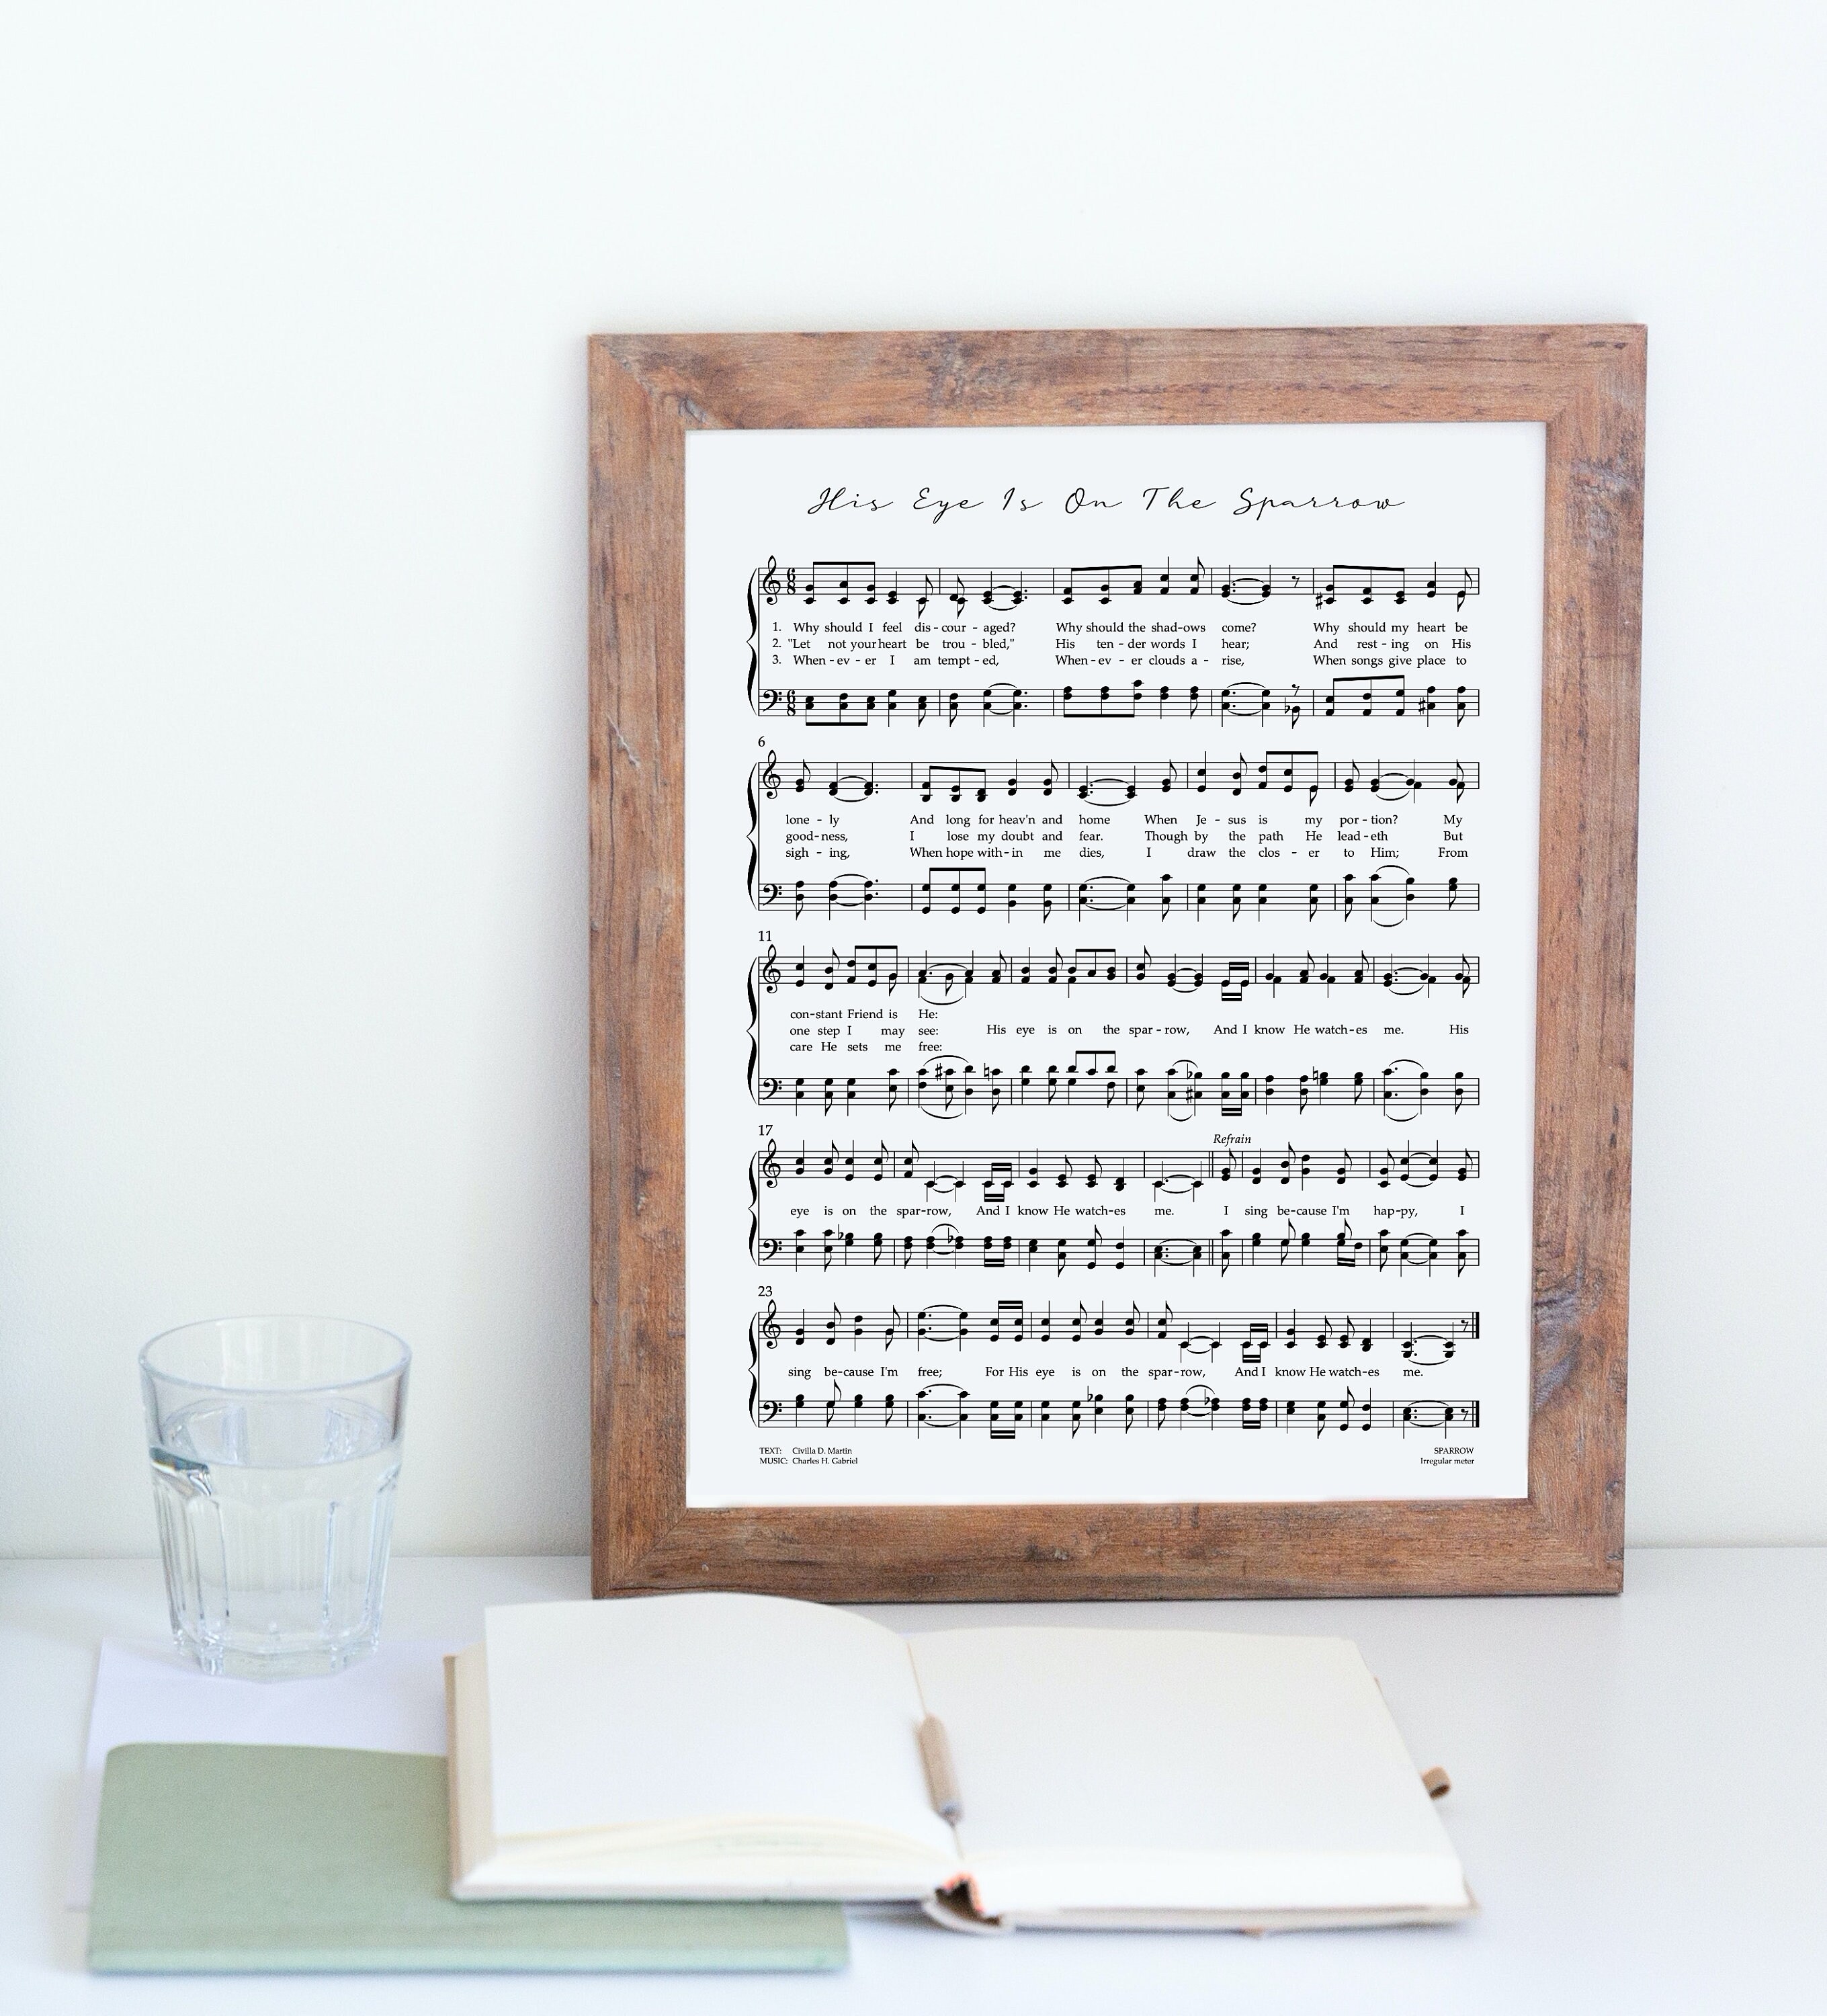 His Eye Is On The Sparrow
1. Why should I feel dis - cour - aged? Why should the shad-ows come? Why should my heart be
2. "Let not your heart be trou - bled," His ten - der words I hear; And rest - ing on His
3. When - ev - er I am tempt - ed, When - ev - er clouds a - rise, When songs give place to
6
lone - ly And long for heav'n and home When Je - sus is my por - tion? My
good - ness, I lose my doubt and fear. Though by the path He lead - eth But
sigh - ing, When hope with - in me dies, I draw the clos - er to Him; From
11
con-stant Friend is He:
one step I may see: His eye is on the spar - row, And I know He watch-es me. His
care He sets me free:
17
Refrain
eye is on the spar-row, And I know He watch-es me. I sing be-cause I'm hap-py, I
23
sing be-cause I'm free; For His eye is on the spar-row, And I know He watch-es me.
TEXT: Civilla D. Martin
MUSIC: Charles H. Gabriel
SPARROW
Irregular meter